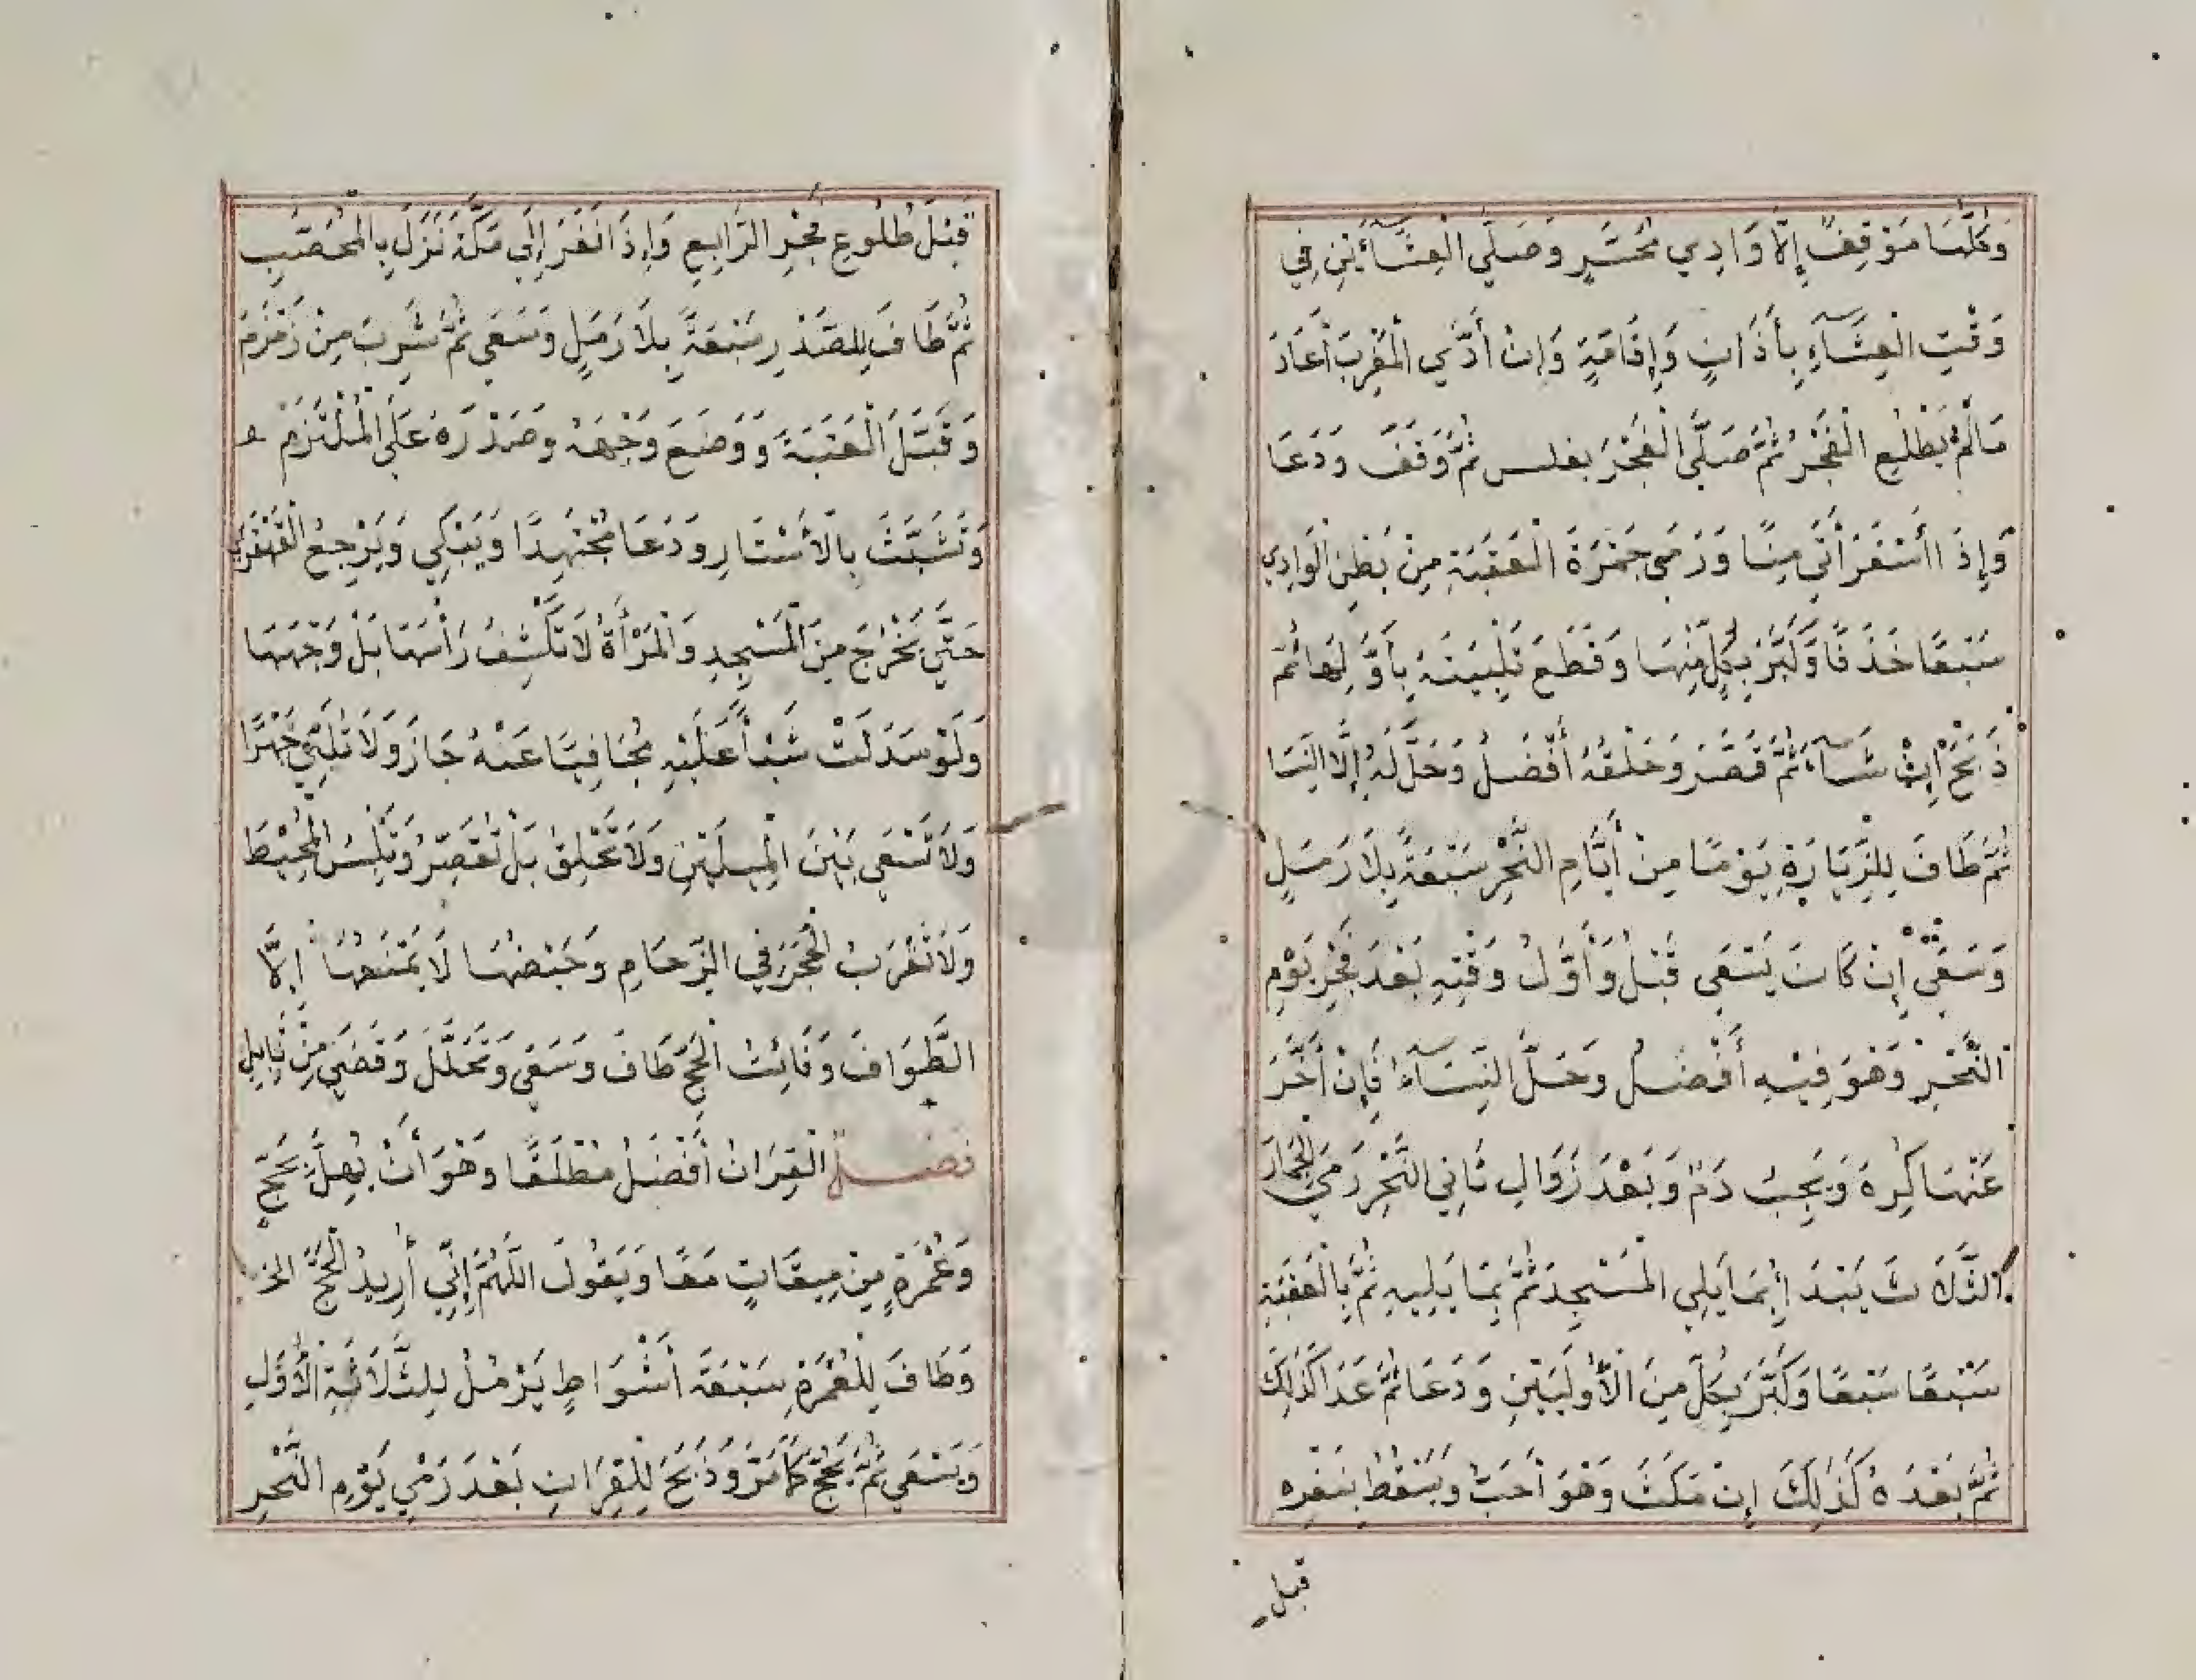 وَكُلُّهَا مَوْقِفٌ إِلَّا وَادِي مُحَسَّرٍ وَصَلَّي الْعِشَآئَيْنِ فِي
وَقْتِ الْعِشَآءِ بِأَذَانٍ وَإِقَامَةٍ وَإِنْ أَدَّي الْمَغْرِبَ أَعَادَ
مَالَمْ يَطْلُعِ الْفَجْرُ ثُمَّ صَلَّي الْفَجْرَ بغلس ثُمَّ وَقَفَ وَدَعَا
وَإِذَا أَسْفَرَ أَتَي مِنًا وَرَمَى جَمْرَةَ الْعَقَبَةِ مِنْ بَطْنِ الْوَادِي
سَبْعًا خَذَفًا وَكَبَّرَ بِكُلٍّ مِنْهَا وَقَطَعَ تَلْبِيَتَهُ بِأَوَّلِهَا ثُمَّ
ذَبَحَ إِنْ شَآءَ ثُمَّ قَصَّرَ وَحَلْقُهُ أَفْضَلُ وَحَلَّ لَهُ إِلَّا النِّسَا
ثُمَّ طَافَ لِلزِّيَارَةِ يَوْمًا مِنْ أَيَّامِ النَّحْرِ سَبْعَةً بِلَا رَمَلٍ
وَسَعْيٍ إِنْ كَانَ يَسْعَى قَبْلُ وَأَوَّلُ وَقْتِهِ بَعْدَ فَجْرِ يَوْمِ
النَّحْرِ وَهُوَ فِيْهِ أَفْضَلُ وَحَلَّ النِّسَآءُ فَإِنْ أَخَّرَ
عَنْهَا كُرِهَ وَيَجِبُ دَمٌ وَبَعْدَ زَوَالِ ثَانِي النَّحْرِ رَمَي الْجِمَارَ
الثَّلَاثَ يَبْدَأ بِمَا يَلِي الْمَسْجِدَ ثُمَّ بِمَا يَلِيهِ ثُمَّ بِالْعَقَبَةِ
سَبْعًا سَبْعًا وَكَبَّرَ بِكُلٍّ مِنَ الْأُولَيَيْنِ وَدَعَا ثُمَّ غَدًا كَذَلِكَ
ثُمَّ بَعْدَهُ كَذَلِكَ إِنْ مَكَثَ وَهُوَ أَحَبُّ وَيَسْقُطُ بِنَفْرِهِ
قبل
قَبْلَ طُلُوعِ فَجْرِ الرَّابِعِ وَإِذَا نَفَرَ إِلَي مَكَّةَ نَزَلَ بِالْمُحَصَّبِ
ثُمَّ طَافَ لِلصَّدْرِ سَبْعَةً بِلَا رَمَلٍ وَسَعَي ثُمَّ شَرِبَ مِنْ زَمْزَمَ
وَقَبَّلَ الْعَتَبَةَ وَوَضَعَ وَجْهَهُ وصَدْرَهُ عَلَي الْمُلْتَزَمِ
وَتَشَبَّثَ بِالْأَسْتَارِ وَدَعَا مُجْتَهِدًا وَيَبْكِي وَيَرْجِعُ الْقَهْقَرَي
حَتَّي يَخْرُجَ مِنَ الْمَسْجِدِ وَالْمَرْأَةُ لَا تَكْشِفُ رَأْسَهَا بَلْ وَجْهَهَا
وَلَوْ سَدَلَتْ شَيْأً عَلَيْهِ مُجَافِيًا عَنْهُ جَازَ وَلَا تُلَبِّي جَهْرًا
وَلَا تَسْعَي بَيْنَ الْمِيلَيْنِ وَلَا تَحْلِقُ بَلْ تُقَصِّرُ وَتَلْبِسُ الْمُحِيْطَ
وَلَا تَقْرَبُ الْحَجَرَ فِي الزِّحَامِ وَحَيْضُهَا لَا يَمْنَعُهَا إِلَّا
الطَّوَافَ وَفَائِتُ الْحَجِّ طَافَ وَسَعَى وَتَحَلَّلَ وَقَضَي مِنْ قَابِلٍ
فصل الْقِرَانُ أَفْضَلُ مُطْلَقًا وَهُوَ أَنْ يُهِلَّ بِحَجٍّ
وَعُمْرَةٍ مِنْ مِيقَاتٍ مَعًا وَيَقُولَ اللَّهُمَّ إِنِّي أُرِيدُ الْحَجَّ الخ
وَطَافَ لِلْعُمْرَةِ سَبْعَةَ أَشْوَاطٍ يَرْمُلُ لِلثَّلَاثَةِ الْأُوَلِ
وَيَسْعَي ثُمَّ يَحُجُّ كَمَا مَرَّ وَذَبَحَ لِلْقِرَانِ بَعْدَ رَمْيِ يَوْمِ النَّحْرِ